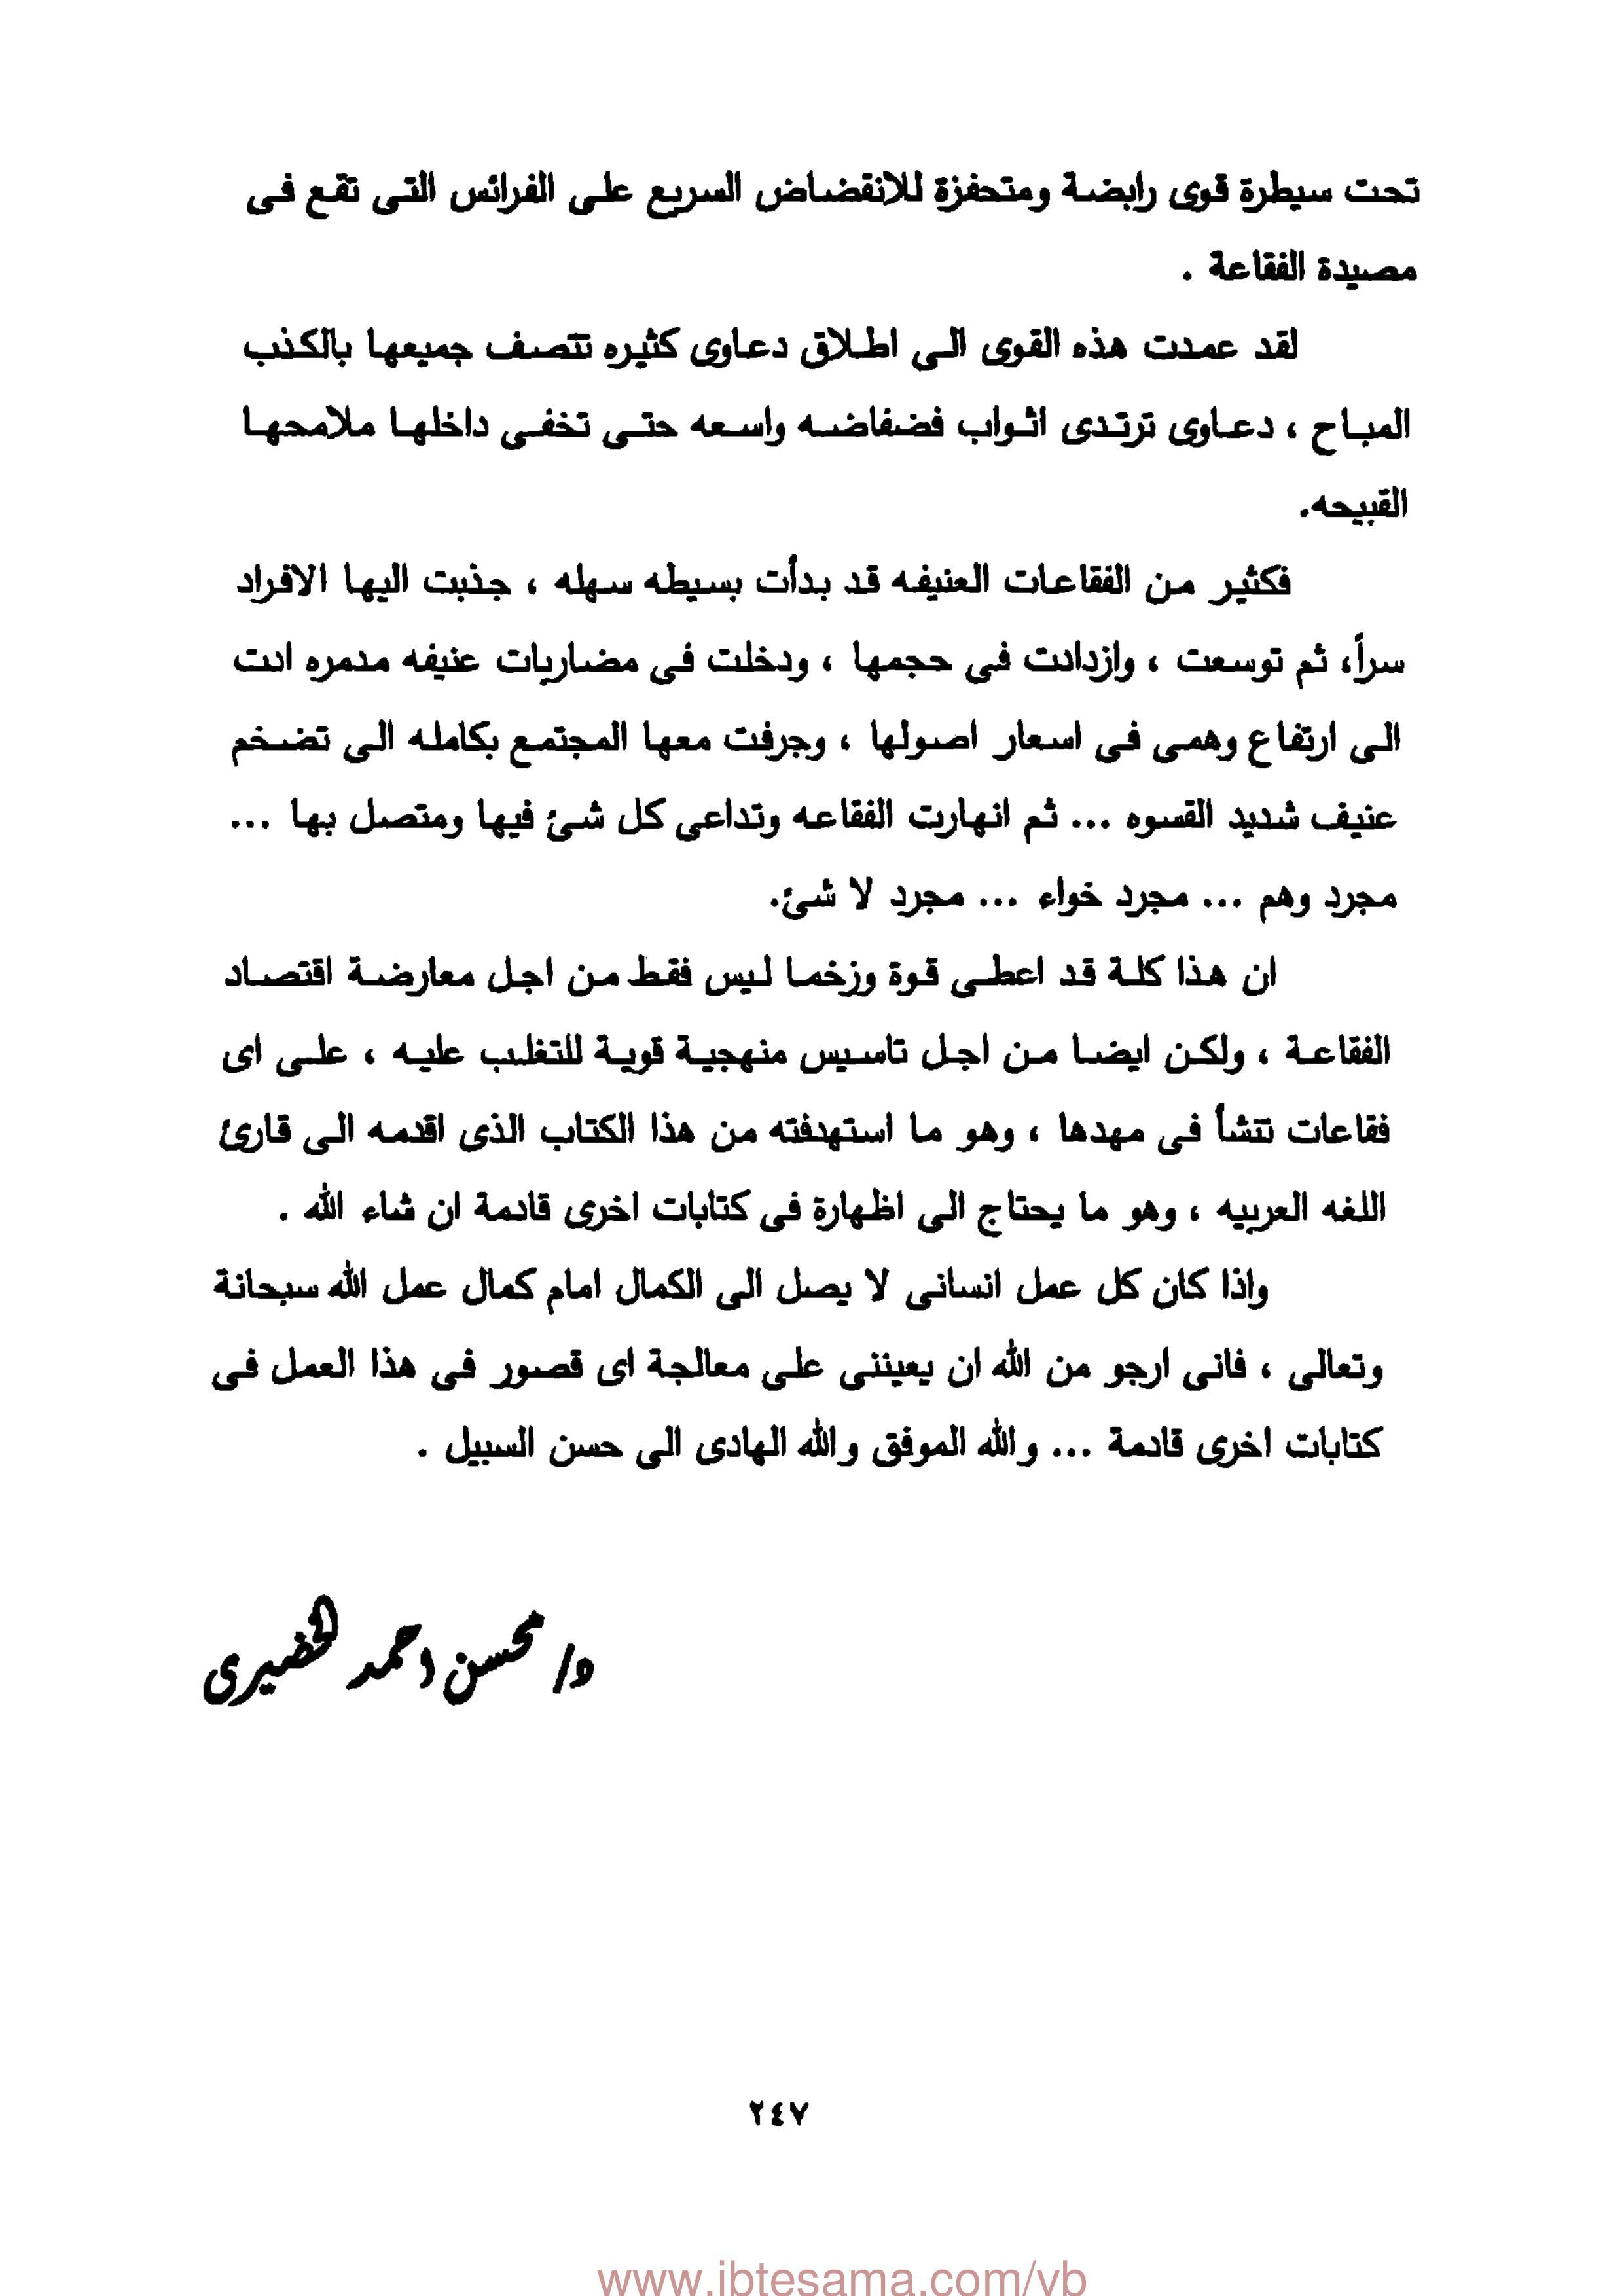 تحت سيطرة قوى رابضة ومتحفزة للانقضاض السريع على الفرائس التى تقع فى
مصيدة الفقاعة .
لقد عمدت هذه القوى الى اطلاق دعاوى كثيره تتصف جميعها بالكذب
المباح ، دعاوى ترتدى اثواب فضفاضه واسعه حتى تخفى داخلها ملامحها
القبيحه.
فكثير من الفقاعات العنيفه قد بدأت بسيطه سهله ، جذبت اليها الافراد
سرأ، ثم توسعت ، وازدادت فى حجمها ، ودخلت فى مضاربات عنيفه مدمره ادت
الى ارتفاع وهمى فى اسعار اصولها ، وجرفت معها المجتمع بكامله الى تضخم
عنيف شديد القسوه ... ثم انهارت الفقاعه وتداعى كل شئ فيها ومتصل بها ...
مجرد وهم ... مجرد خواء ... مجرد لا شئ.
ان هذا كلة قد اعطى قوة وزخما ليس فقط من اجل معارضة اقتصاد
الفقاعة ، ولكن ايضا من اجل تاسيس منهجية قوية للتغلب عليه ، على اى
فقاعات تنشأ فى مهدها ، وهو ما استهدفته من هذا الكتاب الذى اقدمه الى قارئ
اللغه العربيه ، وهو ما يحتاج الى اظهارة فى كتابات اخرى قادمة ان شاء الله .
واذا كان كل عمل انسانى لا يصل الى الكمال امام كمال عمل الله سبحانة
وتعالى ، فانى ارجو من الله ان يعيننى على معالجة اى قصور فى هذا العمل فى
كتابات اخرى قادمة ... والله الموفق والله الهادى الى حسن السبيل .
د/ محسن احمد الخضيرى
٢٤٧
www.ibtesama.com/vb